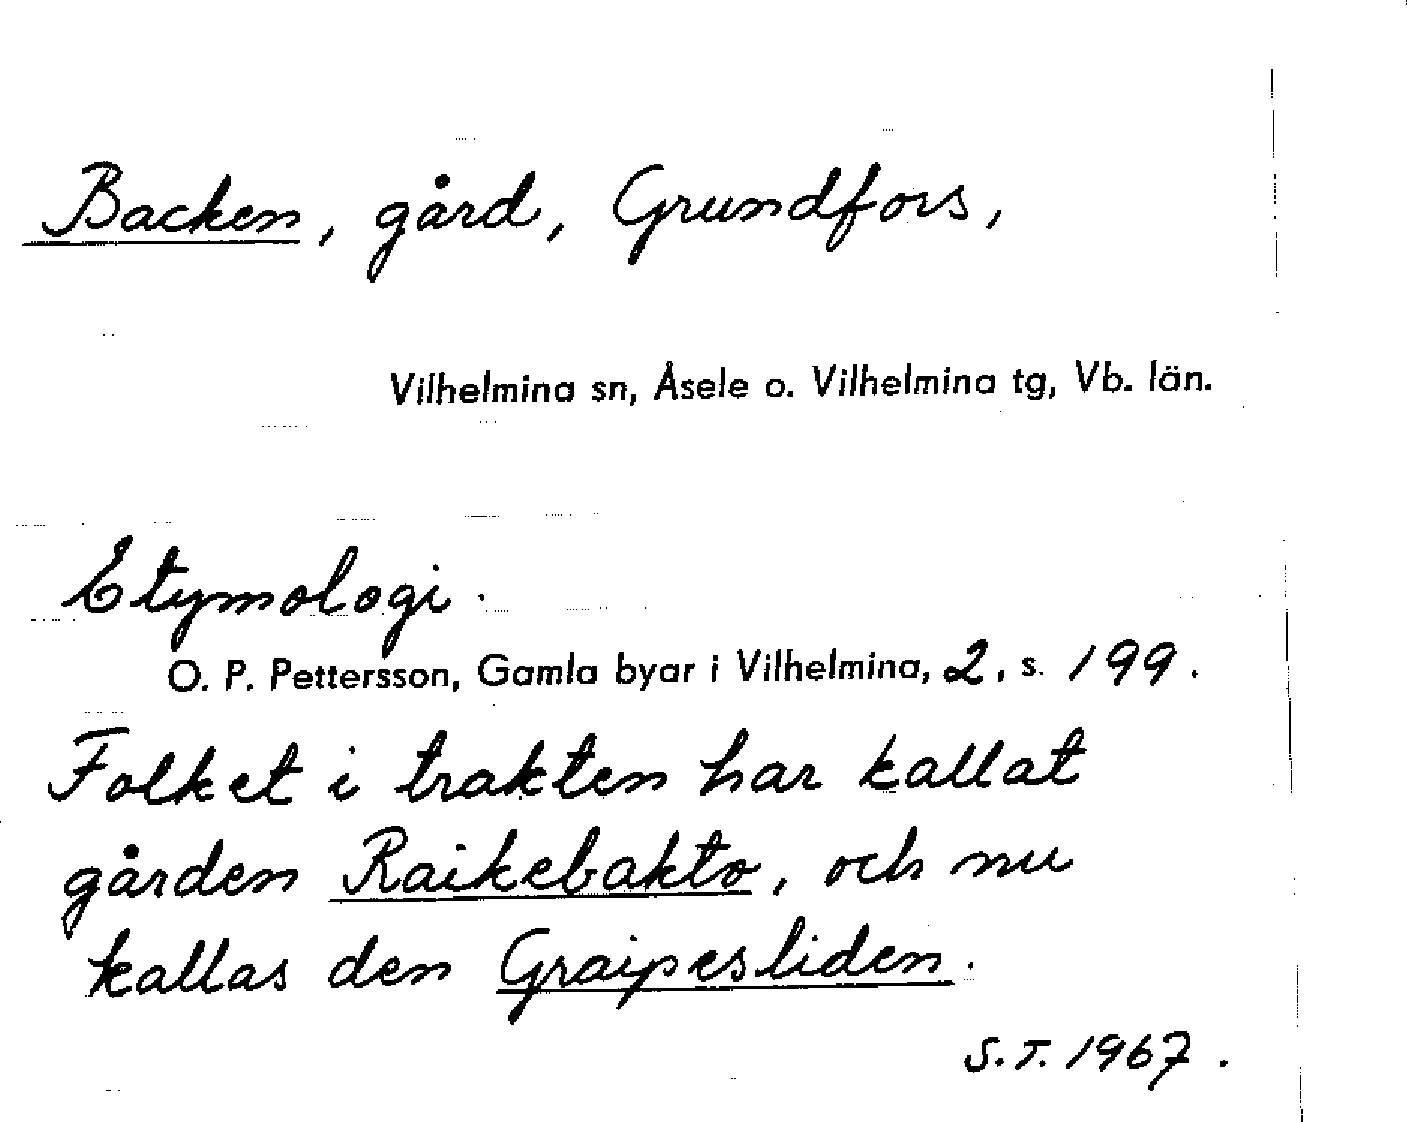 Backen, gård, Grundfors,
Vilhelmina sn, Åsele o. Vilhelmina tg, Vb. län.
Etymologi.
O. P. Pettersson, Gamla byar i Vilhelmina, 2, s. 199.
Folket i trakten har kallat
gården Raikebakto, och nu
kallas den Graipesliden.
S.T. 1967.